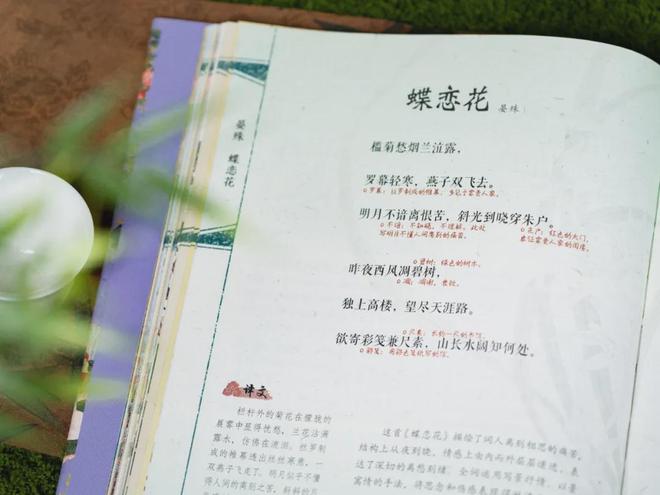 蝶恋花 晏殊
晏殊 蝶恋花
槛菊愁烟兰泣露，
罗幕轻寒，燕子双飞去。
罗幕：丝罗制成的帷幕，多见于富贵人家。
明月不谙离恨苦，斜光到晓穿朱户。
不谙：不知晓，不理解。此处
写明月不懂人间离别的痛苦。
朱户：红色的大门，
碧树：绿色的树木。
昨夜西风凋碧树，
凋：凋谢，衰败。
独上高楼，望尽天涯路。
尺素：
欲寄彩笺兼尺素，山长水阔知何处。
彩笺：
译文
栏杆外的菊花在朦胧的
晨雾中显得忧愁，兰花沾满
露水，仿佛在流泪。丝罗制
成的帷幕透出丝丝寒意，一
双燕子飞走了。明月似乎不懂
得人间的离别之苦，斜斜的月
这首《蝶恋花》描绘了词人离别相思的痛苦，
结构上从夜到晓，情感上由内而外层层递进，表
达了深切的离愁别绪。全词运用写景抒情，以景
寓情的手法，将思念和伤感表现得